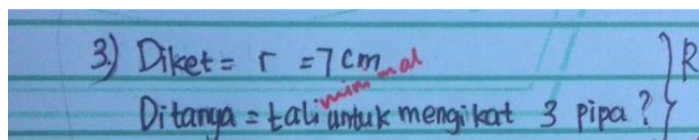 3.) Diket = r = 7 cm
Ditanya = tali minimal untuk mengikat 3 pipa? } R